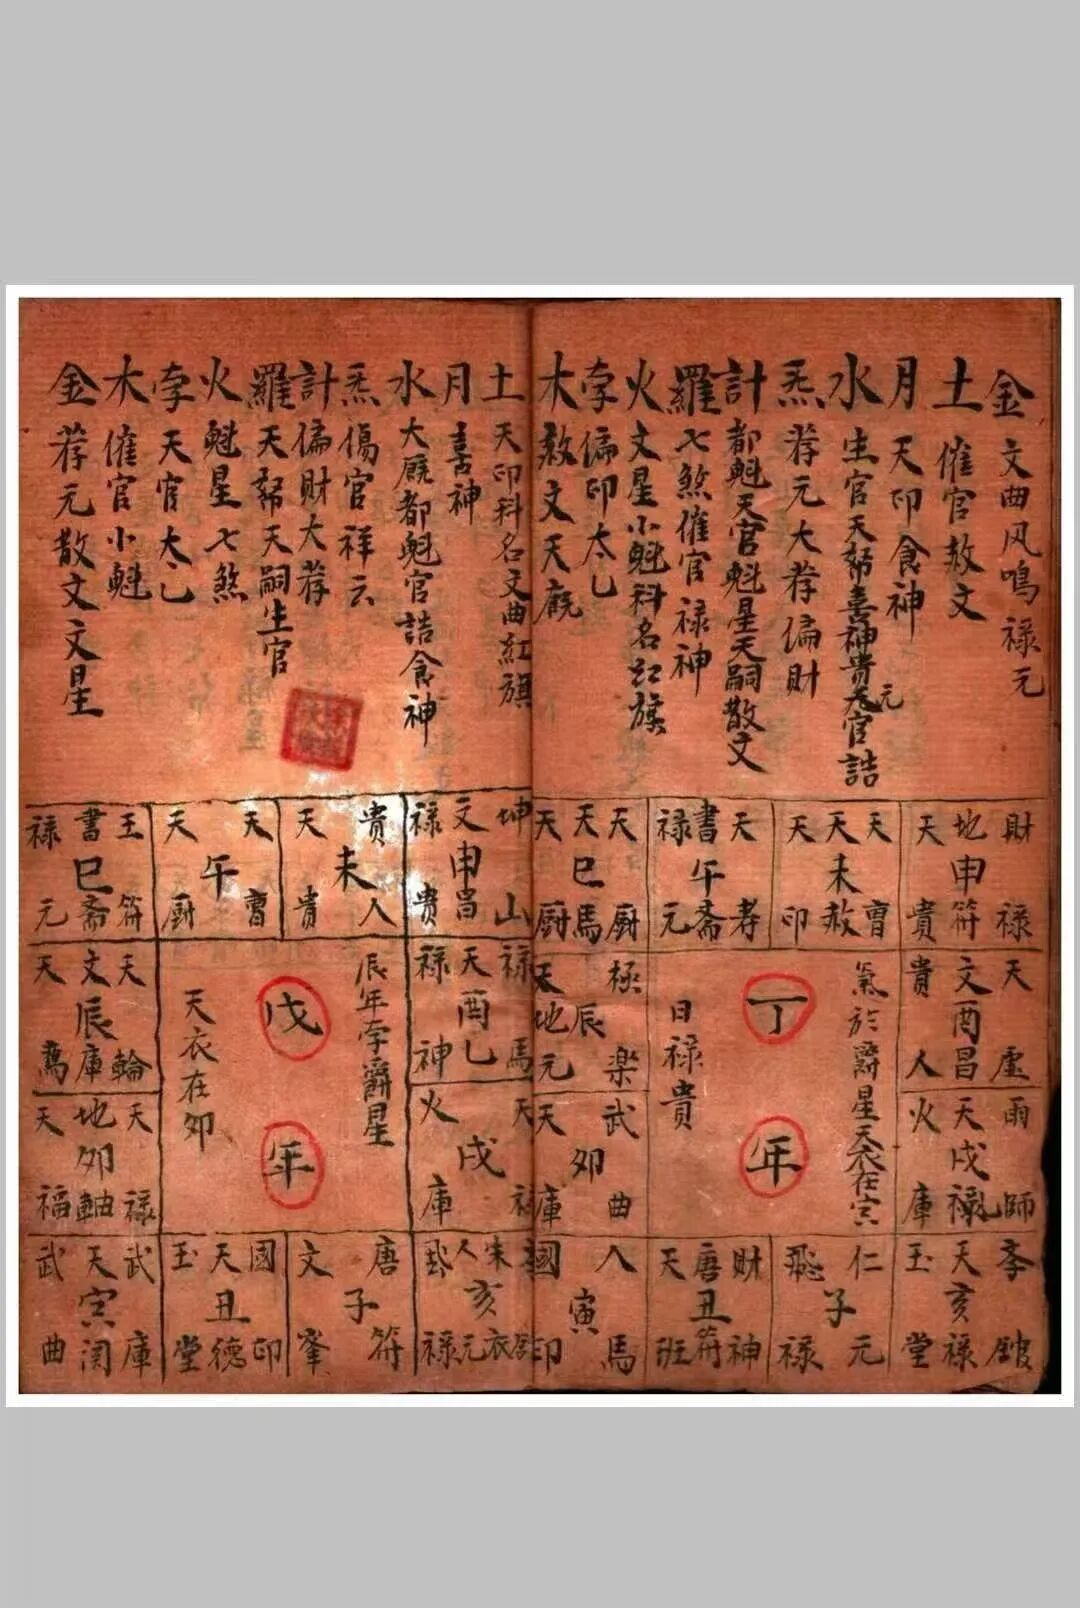 金 文曲风鳴禄元
土 催官赦文
月 天印食神
水 生官天帑喜神貴元官誥
炁 荐元大荐偏財
計 都魁天官魁星天嗣散文
羅 七煞催官禄神
火 文星小魁科名红旗
孛 偏印太乙
木 赦文天廐
土 天印科名文曲紅旗
月 喜神
水 大廐都魁官誥食神
炁 傷官祥云
計 偏財大荐
羅 天帑天嗣生官
火 魁星七煞
孛 天官太乙
木 催官小魁
金 荐元散文文星
財禄 地申符 天貴
天曹 天未赦 天印
天孝 書午斋 禄元
天厨 天巳馬 天厨
天虚 文酉昌 貴人
氣於爵星天衣在寅
丁年
日禄貴
極楽 辰 天地元
雨師 天戌禄 火庫
武曲 卯 天庫
孛舘 天亥禄 玉堂
仁元 子 飛禄
財神 唐丑符 天班
人馬 寅 國印
坤山 文申昌 禄貴
貴人 未 天貴
天曹 午 天厨
玉符 書巳斋 禄元
禄馬 天酉乙 禄神
辰年孛爵星
戊年
天衣在卯
天輪 文辰庫 天薦
天禄 戌 火庫
天禄 地卯軸 天福
朱衣 人亥元 卦禄
唐符 子 文峯
國印 天丑德 玉堂
武庫 天寅闰 武曲